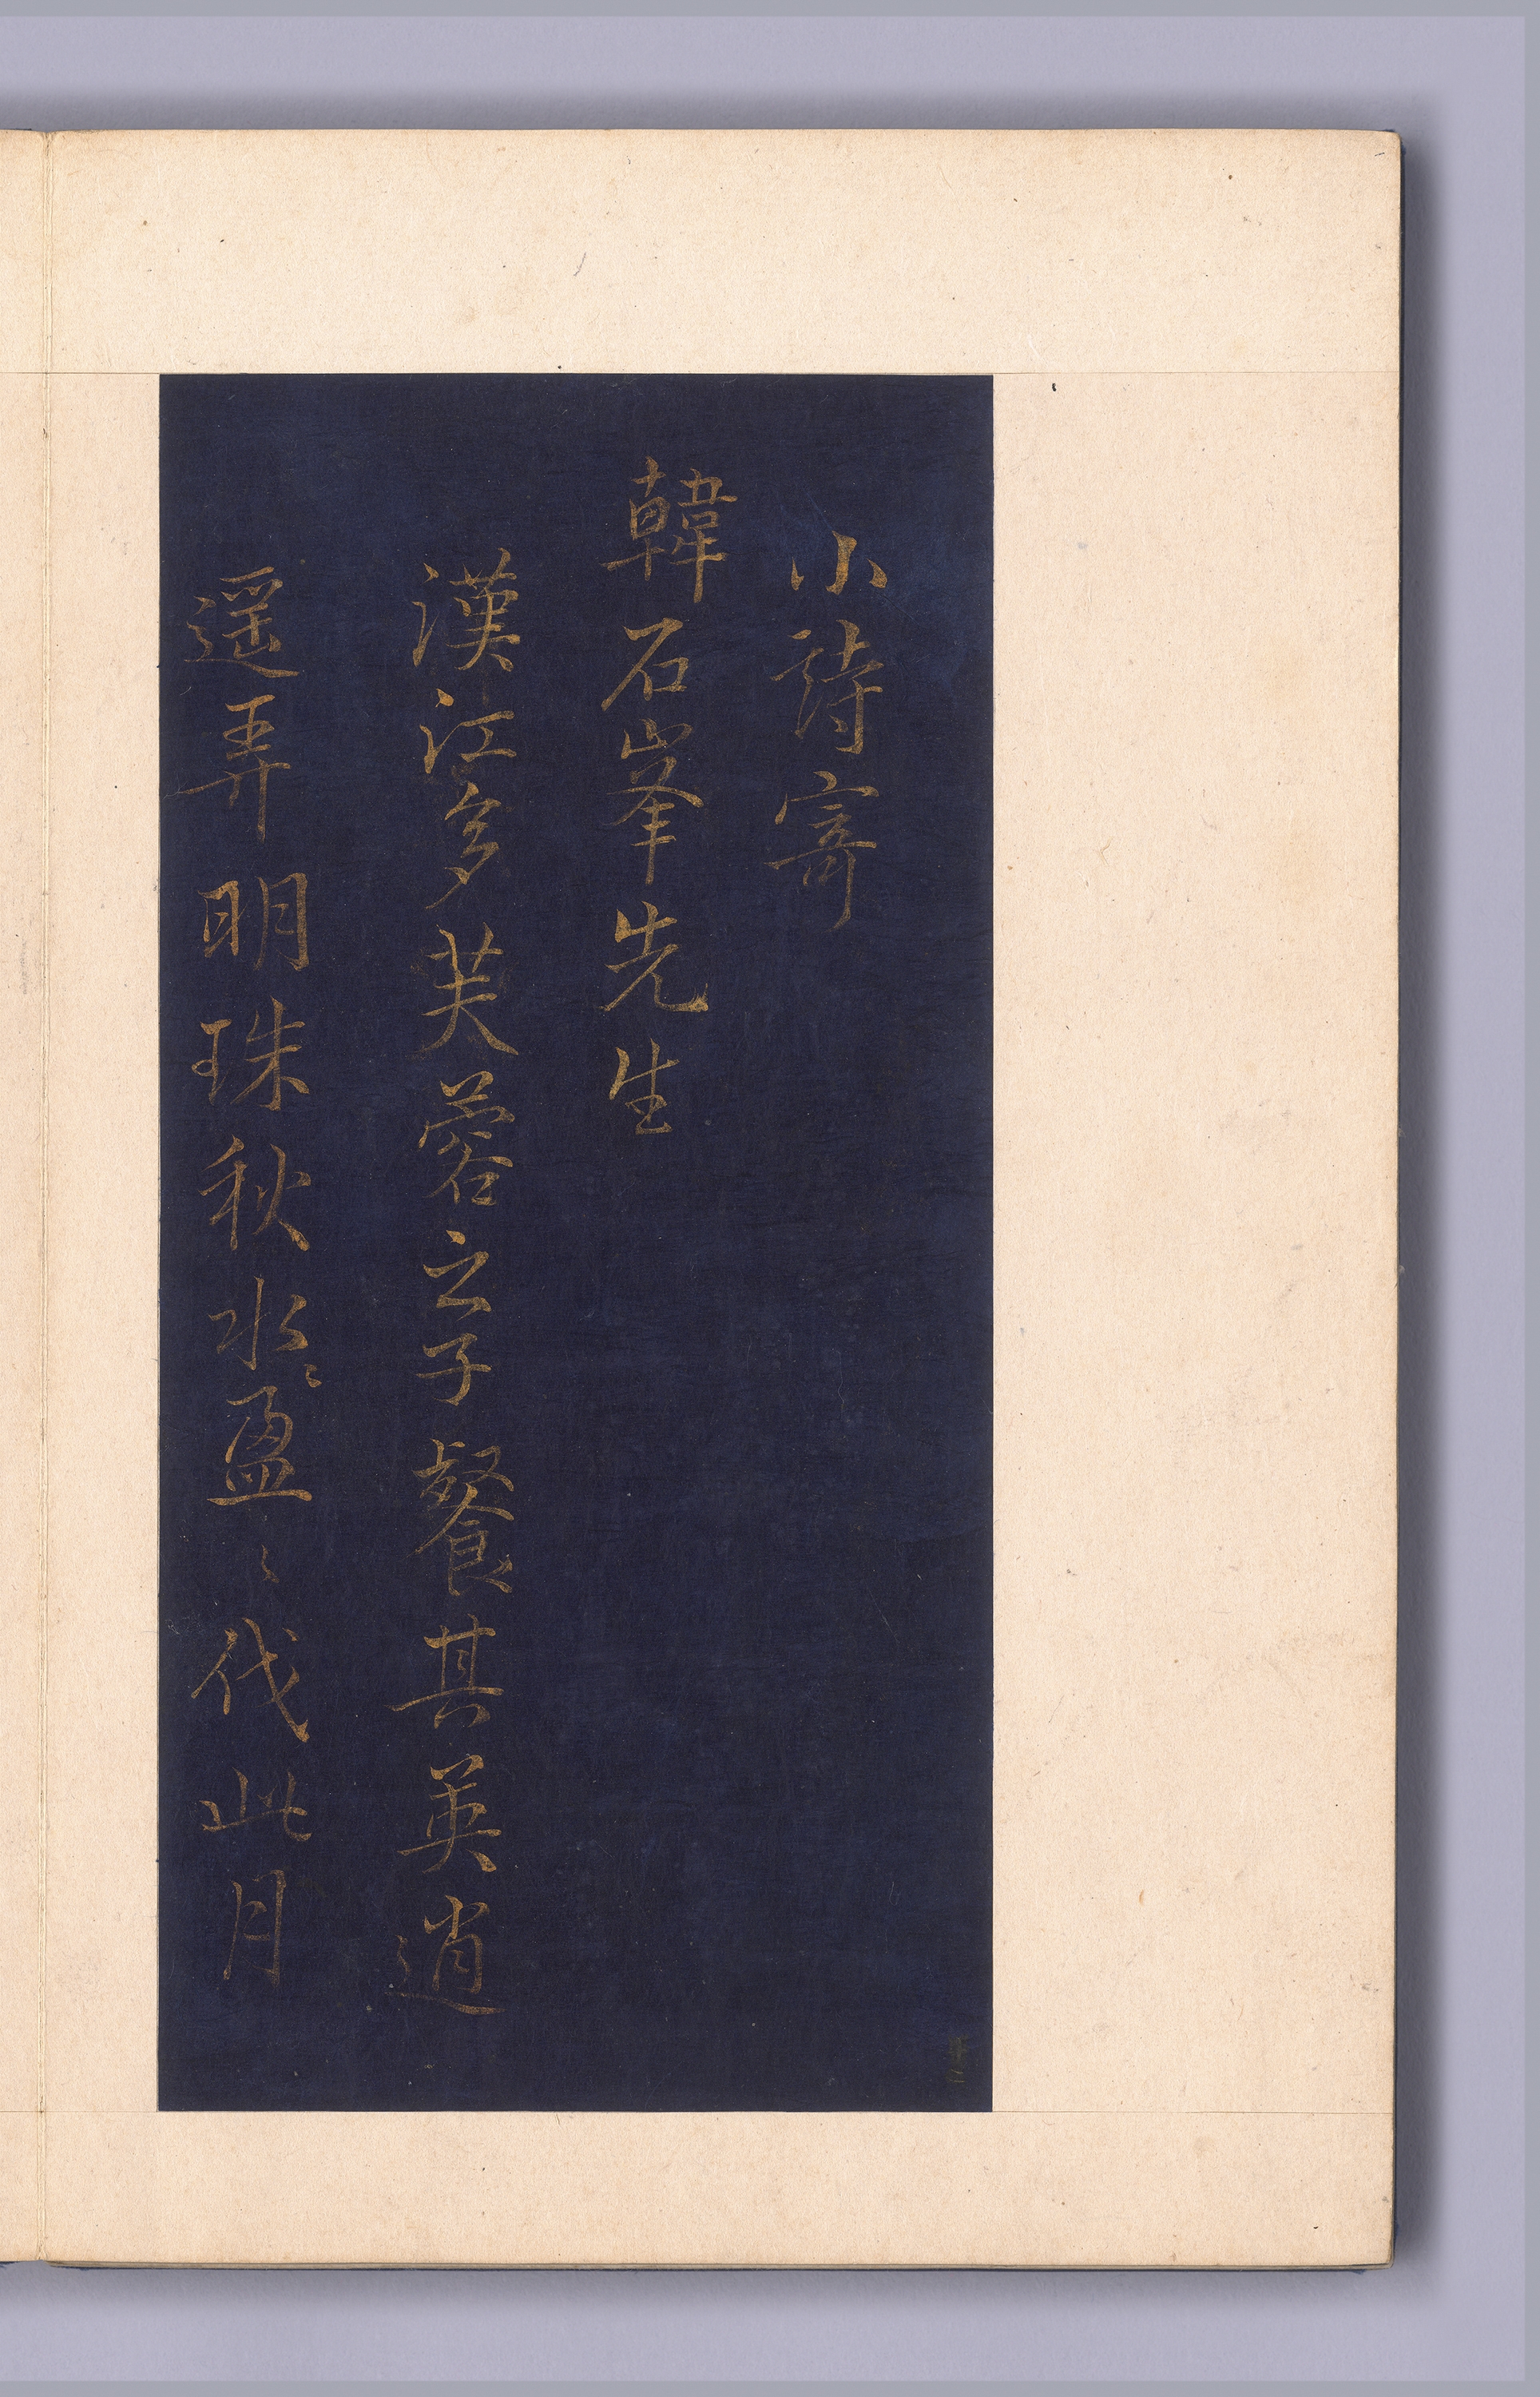 小詩寄
韓石峯先生
漢江多芙蓉之子餐其英逍
遥弄明珠秋水〻盈〻代此月